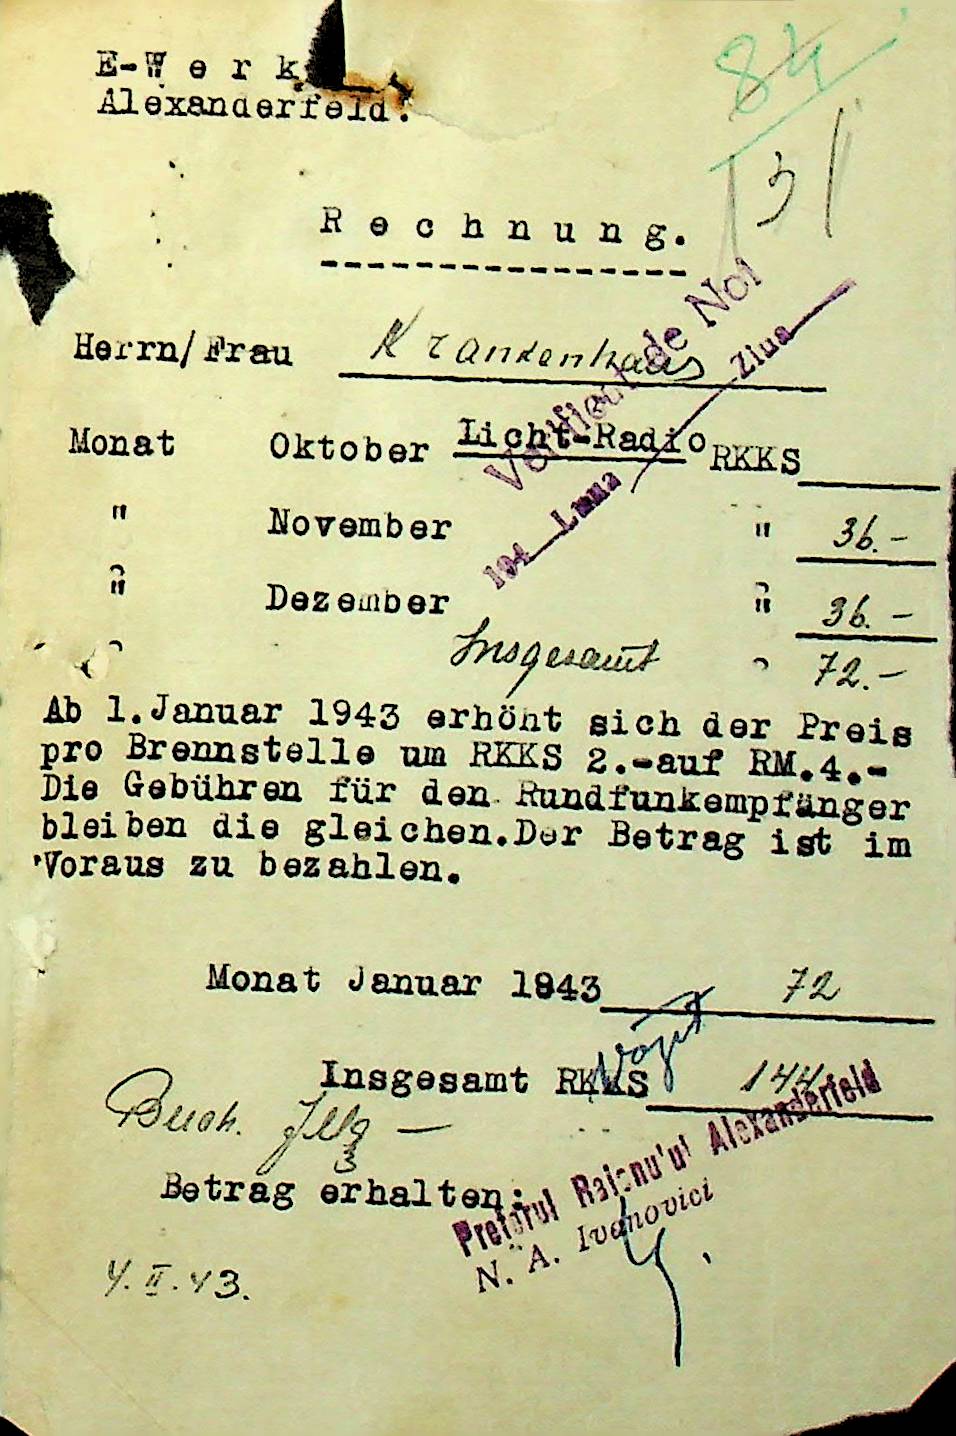 84
E-W e r k
Alexanderfeld.
R e c h n u n g.
----------------
Herrn/Frau Krankenhaus
Verificat de Noi
194 Luna Ziua
Monat Oktober Licht-Radio RKKS
" November " 36.-
" Dezember " 36.-
Insgesamt " 72.-
Ab 1.Januar 1943 erhöht sich der Preis
pro Brennstelle um RKKS 2.-auf RM.4.-
Die Gebühren für den Rundfunkempfänger
bleiben die gleichen.Der Betrag ist im
Voraus zu bezahlen.
Monat Januar 1943 72
Insgesamt RKKS 144
Buch.
Betrag erhalten:
Pretorul Raionu'ui Alexanderfeld
N. A. Ivanovici
4.II.43.